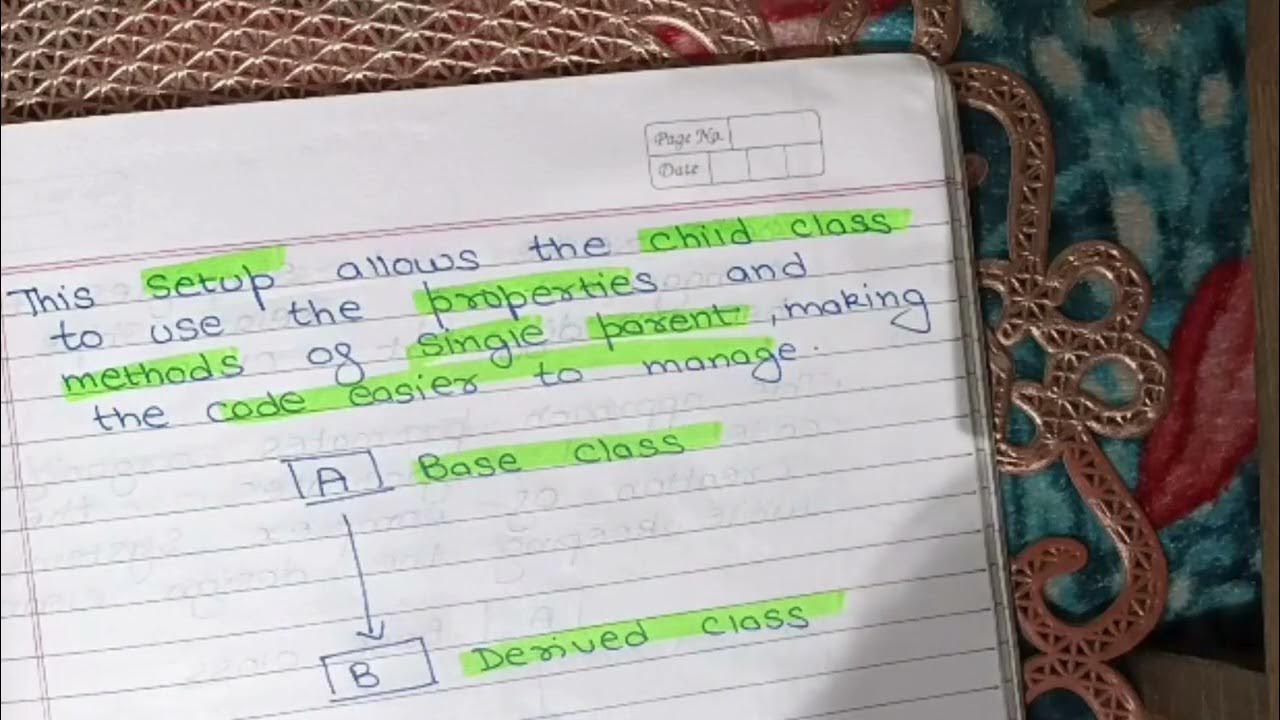 Page No.
Date
This setup allows the child class
to use the properties and
methods of single parent, making
the code easier to manage.
A Base class
B Derived class